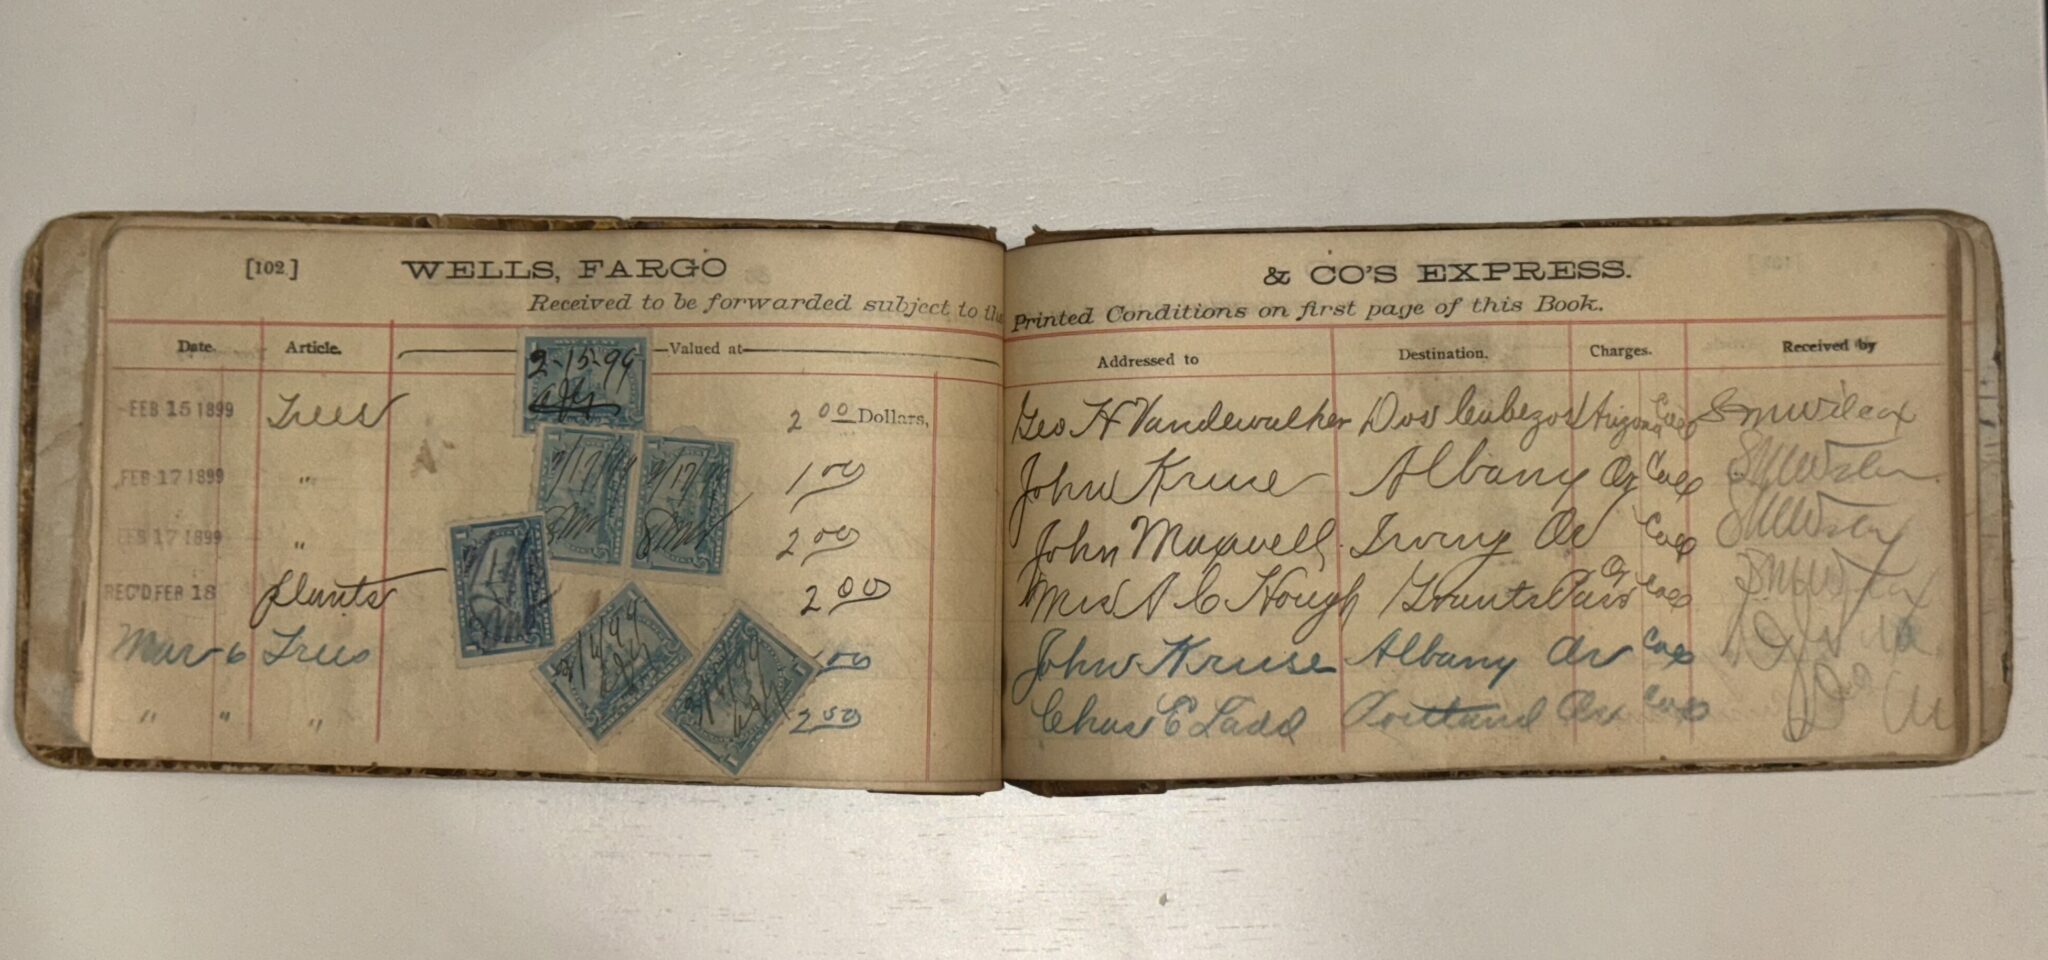 [102] WELLS, FARGO & CO'S EXPRESS.
Received to be forwarded subject to the Printed Conditions on first page of this Book.
Date. Article. Valued at Addressed to Destination. Charges. Received by
ONE CENT
2-15-99
FEB 15 1899 Trees 2 00 Dollars, Geo H Vandewalker Dos Cabezos Arizona Col S M Wilcox
2/17/99 2/17/99
FEB 17 1899 " 1 00 John Kruse Albany Or Col
FEB 17 1899 " 2 00 John Maxwell Irving Or Col
REC'D FEB 18 plants 2 00 Mrs A C Hough Grants Pass Or Col
Mar 6 Trees 00 John Kruse Albany Or Col
" " " 2 50 Chas E Ladd Portland Or Col